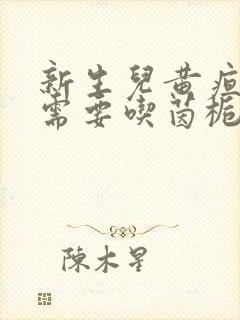 新生兒黃疸
需要喫茵梔
陳木星